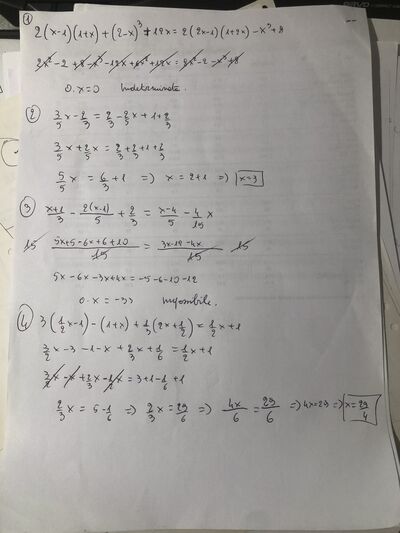 1
2(x-1)(1+x)+(2-x)³+12x=2(2x-1)(1+2x)-x³+8
2x²-2+8-x³-12x+6x²+12x=8x²-2-x³+8
0·x=0 Indeterminata.
2
3/5 x - 2/3 = 2/3 - 2/5 x + 1 + 2/3
3/5 x + 2/5 x = 2/3 + 2/3 + 1 + 2/3
5/5 x = 6/3 + 1 => x = 2+1 => x=3
3
x+1/3 - 2(x-1)/5 + 2/3 = x-4/5 - 4/15 x
15 5x+5-6x+6+10/15 = 3x-12-4x/15 15
5x-6x-3x+4x=-5-6-10-12
0·x=-33 impossibile.
4
3(1/2 x-1)-(1+x)+1/3(2x+1/2)=1/2 x+1
3/2 x-3-1-x+2/3 x+1/6=1/2 x+1
3/2 x-x+2/3 x-1/2 x=3+1-1/6+1
2/3 x=5-1/6 => 2/3 x=29/6 => 4x/6=29/6 => 4x=29 => x=29/4